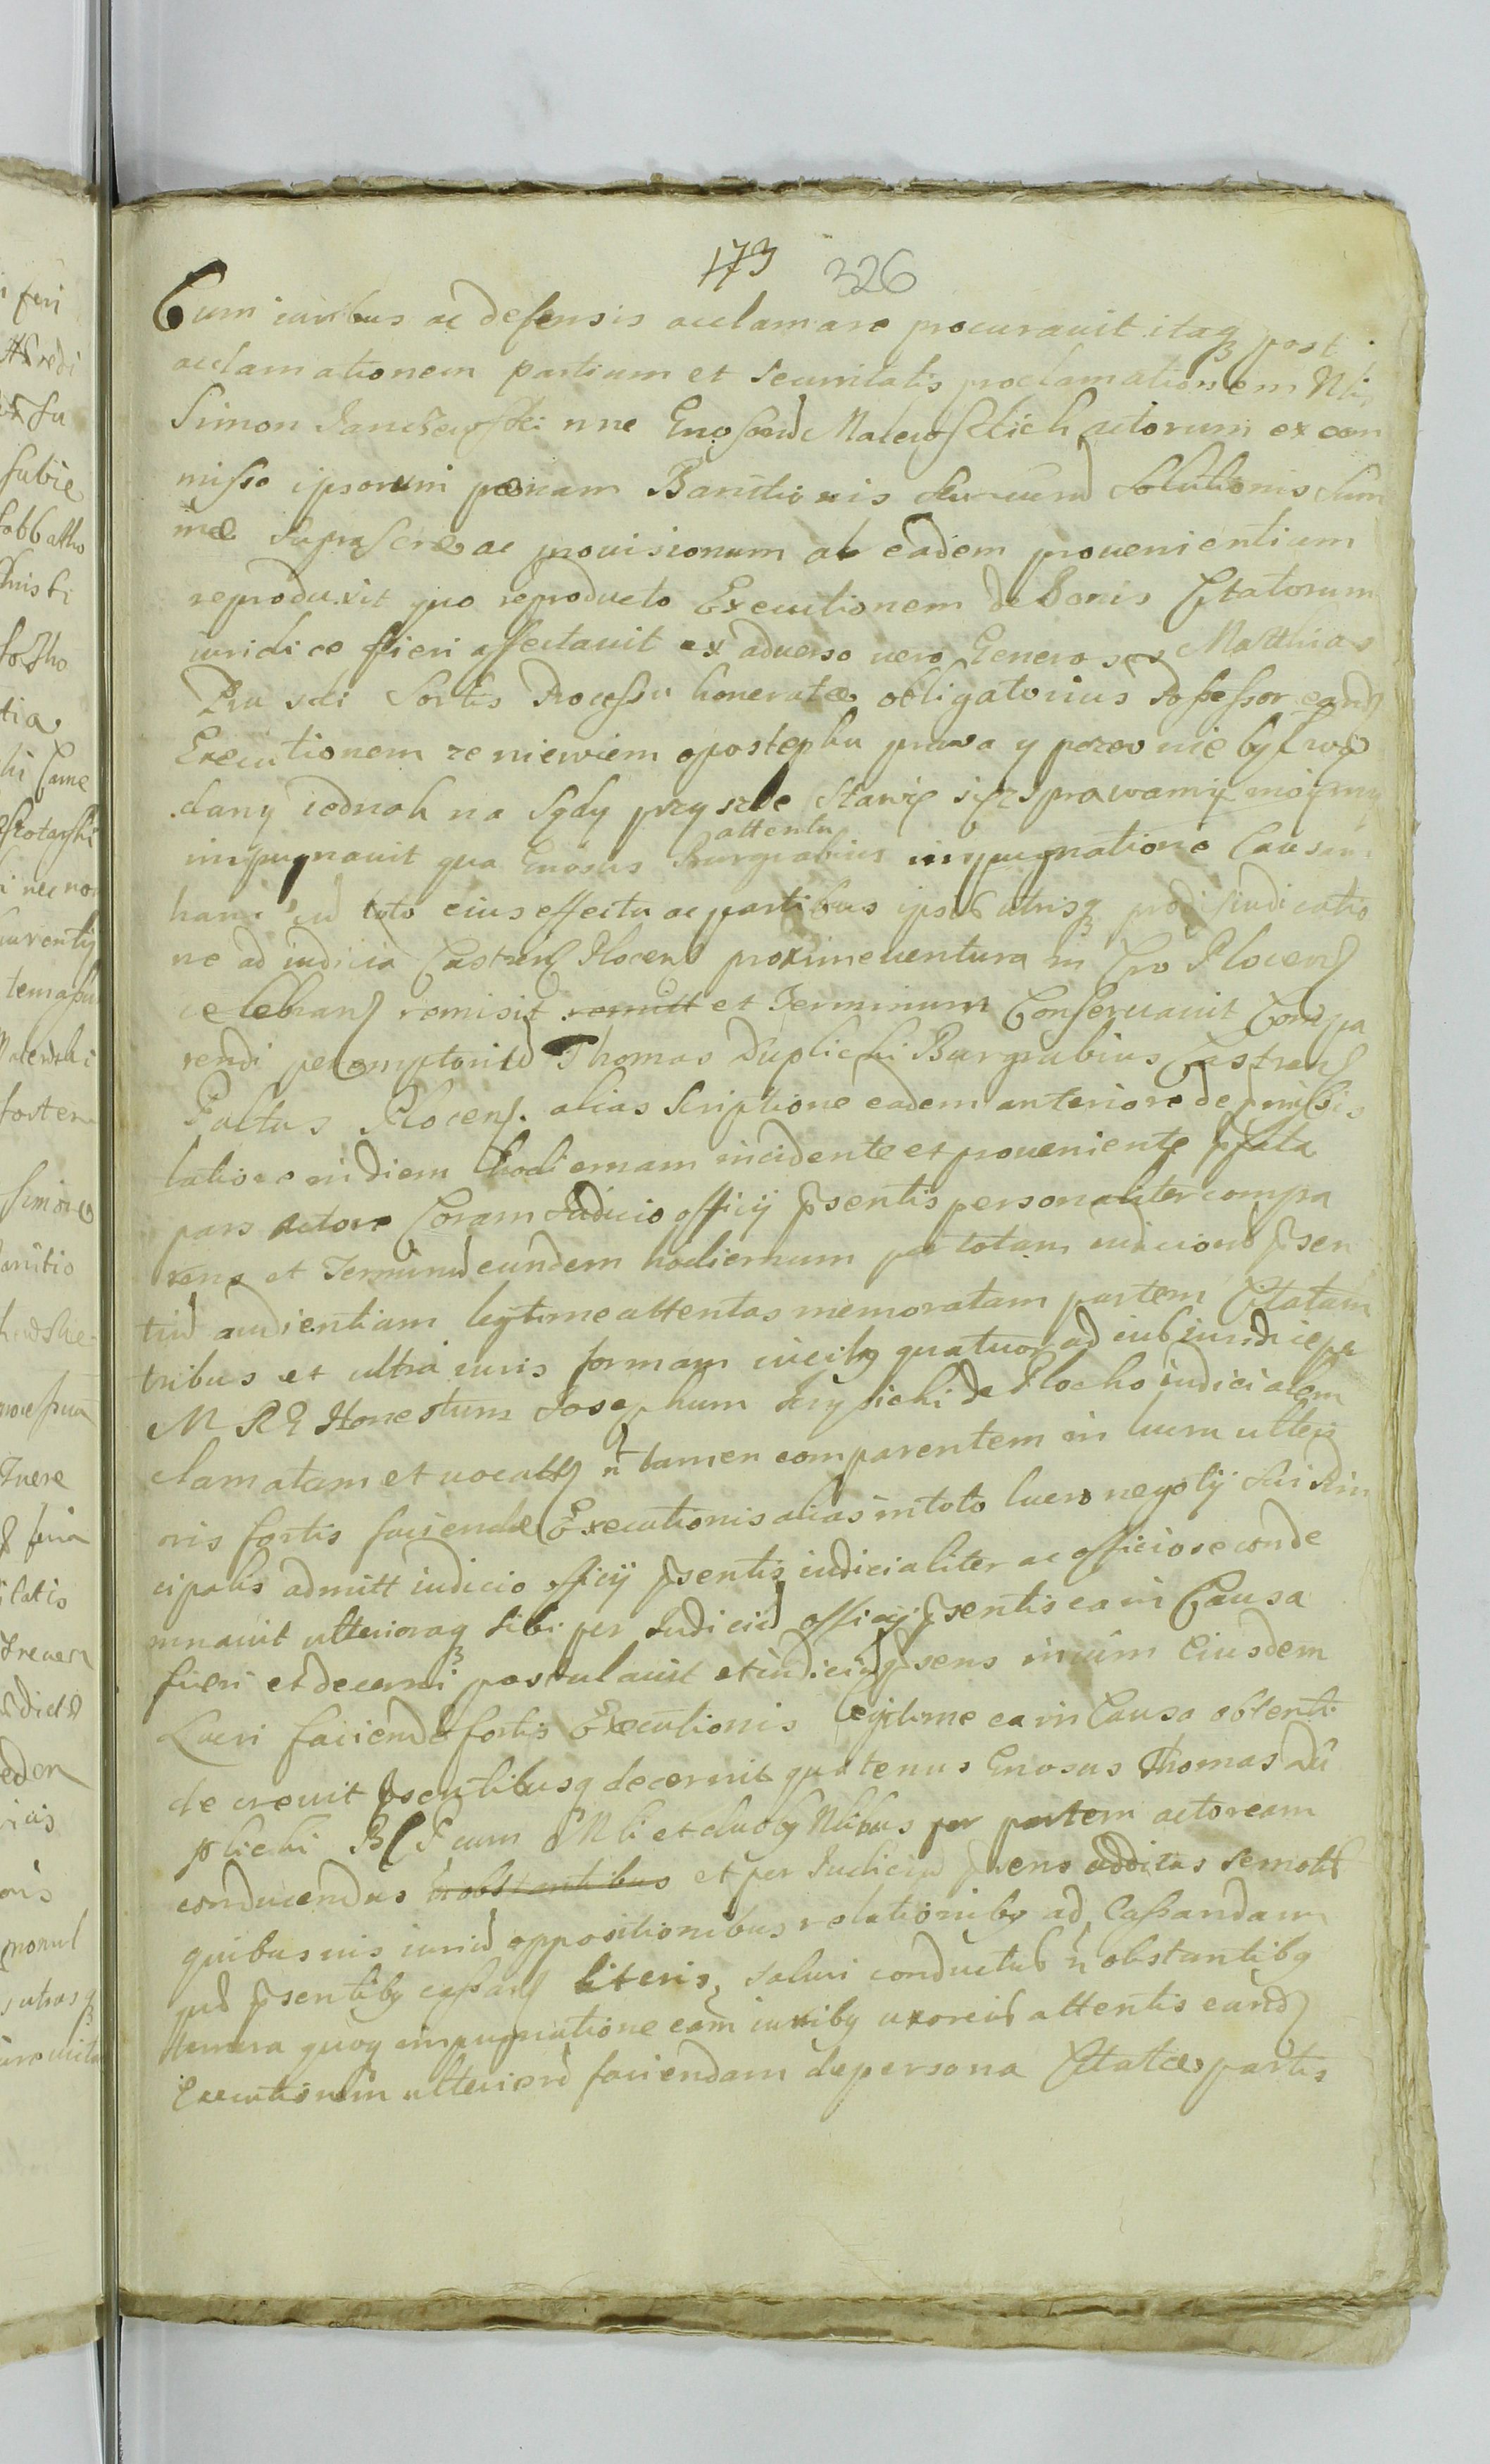 173 326
Cum iuribus ac defensis acclamare procurauit itaq post
acclamationem partium et securitatis proclamationem Nlis
Simon nne Gnosorud actorum ex com
misso ipsorum pœnam Bannitionis solutionis Sum
mæ suprascræ ac prouisionum ab eadem prouenientium
reproduxit quo reproducto Executionem de bonis Cttatorum
iuridice fieri affectauit ex aduerso uero Generosus Matthias
Pruski Sortis Processu honeratæ obligatorius Possessor eand
Executionem ze niewiem opostepku prawa y pozew nie był
dany iednak na Sądy przyszłe Stawię się zsprawamy moiemy
impugnauit qua Gnosus Burgrabius attenta impugnatione Causam
hanc cu toto eius effectu ac partibus ipsis utrisq pro diiudicatio
ne ad iudicia Castren Plocens proxime uentura in Cro Plocens
celebran remisit remitt et Terminum Conseruauit Compa
rendi peremptoriu Thomas Duplicki Burgrabius Castren
Paltus Plocens. alias Scriptione eadem anteriore de præmissis
latiore in diem hodiernam incidente et proueniente pfata
pars actore Coram Judicio officij psentis personaliter compa
rens et Terminu eundem hodiernum per totam iudicioru psen
tiu audientiam legitime attentas memoratam partem Cttatam
tribus et ultra iuris formam uicibq quatuor ad iubiundi
M R G Honestum Josephum de Plocko iudicialem
clamatam et uocatt n tamen comparentem in lucru ulteri
oris fortis faciendæ Executionis alias in toto lucro negotij sui Prin
cipalis admitt iudicio officij psentis iudicialiter ac officiose conde
mnauit ulterioraq sibi per Judiciu officij psentis ea in Causa
fieri et decerni postulauit et iudiciu psens in uim Eiusdem
Lucri faciendæ fortis Executionis legitime ea in Causa obtenti
decreuit psentibusq decernit quatenus Gnosus Thomas Du
plicki B C P cum Mli et duobq Nlibus per partem actoream
conducendus n obstantibus et per Judiciu psens additus semotis
quibusuis iuriu oppositionibus relationibq ad Cassandam
psentibq cassan literis, salui conductus n obstantibq
Munera quoq impugnatione eam iuribq uxoreis attentis eand
Executionem ulteriore faciendam de persona Cttatæ partis